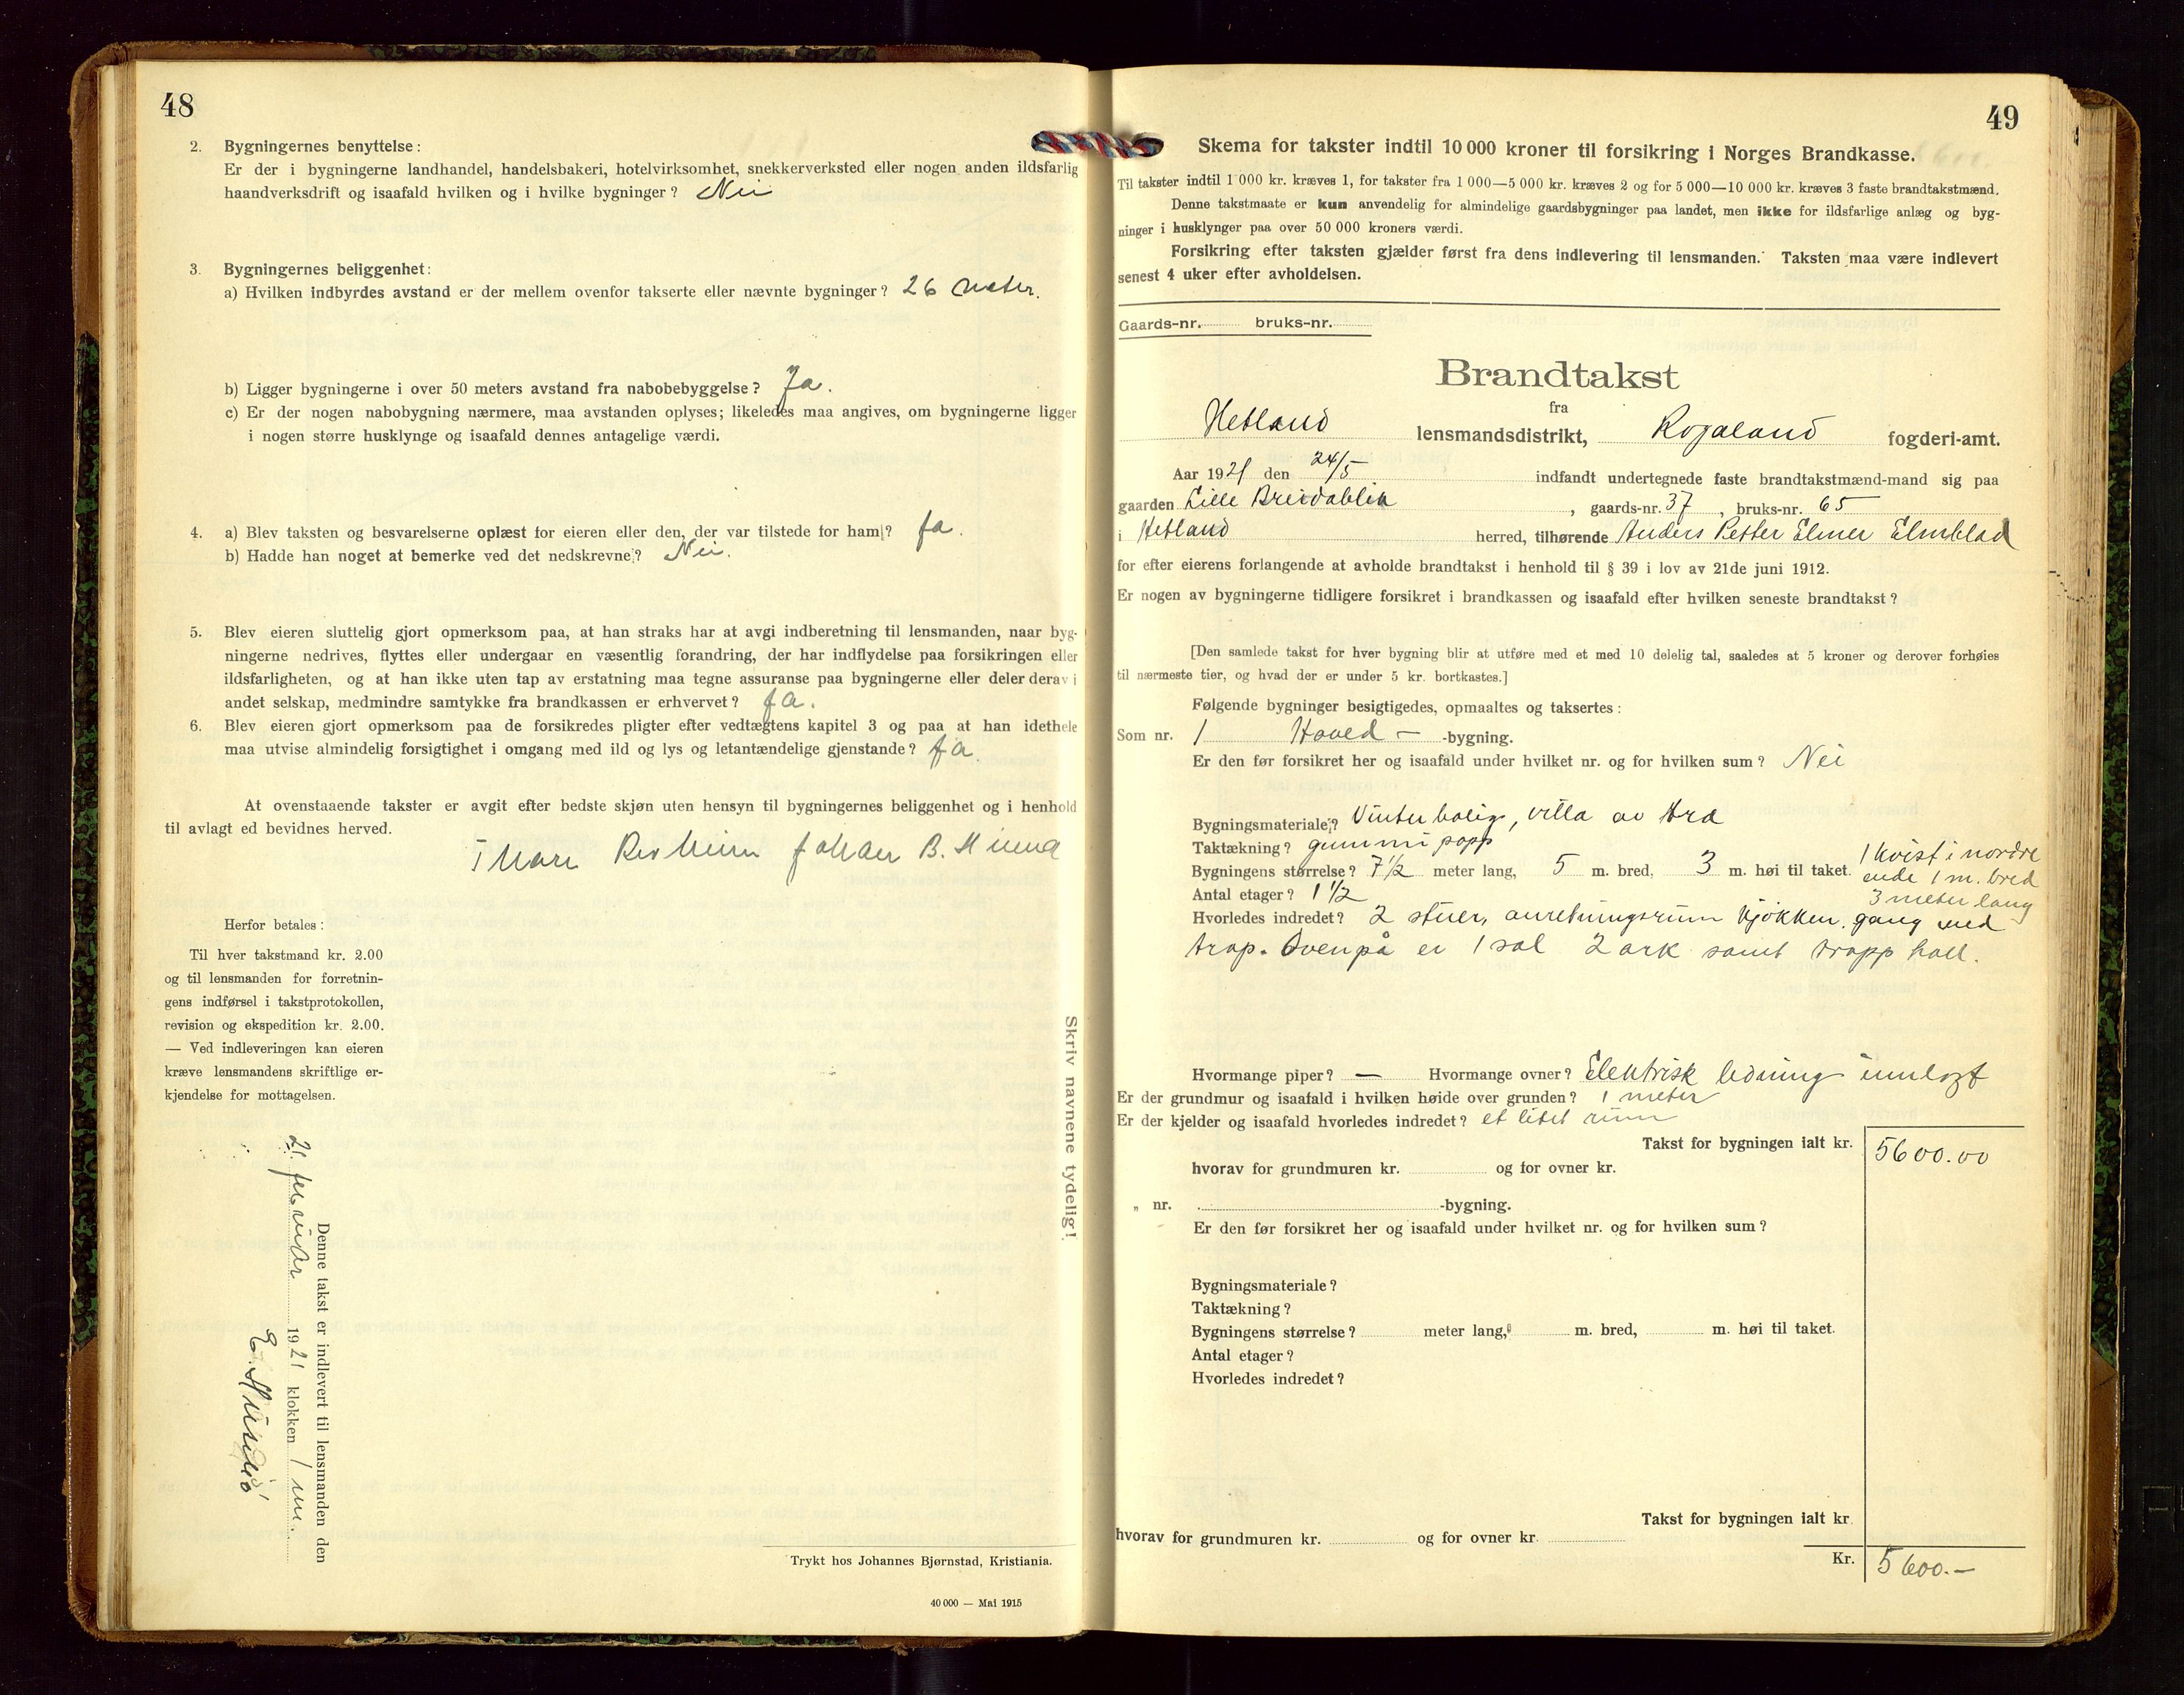 48
2. Bygningernes benyttelse:
Er der i bygningerne landhandel, handelsbakeri, hotelvirksomhet, snekkerverksted eller nogen anden ildsfarlig
haandverksdrift og isaafald hvilken og i hvilke bygninger? Nei
3. Bygningernes beliggenhet:
a) Hvilken indbyrdes avstand er der mellem ovenfor takserte eller nævnte bygninger? 26 meter.
b) Ligger bygningerne i over 50 meters avstand fra nabobebyggelse? Ja.
c) Er der nogen nabobygning nærmere, maa avstanden oplyses; likeledes maa angives, om bygningerne ligger
i nogen større husklynge og isaafald dennes antagelige værdi.
4. a) Blev taksten og besvarelserne oplæst for eieren eller den, der var tilstede for ham? Ja.
b) Hadde han noget at bemerke ved det nedskrevne? Nei.
5. Blev eieren sluttelig gjort opmerksom paa, at han straks har at avgi indberetning til lensmanden, naar byg-
ningerne nedrives, flyttes eller undergaar en væsentlig forandring, der har indflydelse paa forsikringen eller
ildsfarligheten, og at han ikke uten tap av erstatning maa tegne assuranse paa bygningerne eller deler derav i
andet selskap, medmindre samtykke fra brandkassen er erhvervet? Ja.
6. Blev eieren gjort opmerksom paa de forsikredes pligter efter vedtægtens kapitel 3 og paa at han idethele
maa utvise almindelig forsigtighet i omgang med ild og lys og letantændelige gjenstande? Ja
At ovenstaaende takster er avgit efter bedste skjøn uten hensyn til bygningernes beliggenhet og i henhold
til avlagt ed bevidnes herved.
Johan B.
Herfor betales:
Til hver takstmand kr. 2.00
og til lensmanden for forretnin-
gens indførsel i takstprotokollen,
revision og ekspedition kr. 2.00.
— Ved indleveringen kan eieren
kræve lensmandens skriftlige er-
kjendelse for mottagelsen.
Denne takst er indlevert til lensmanden den
21. februar 1921 klokken 1 m.
E.
Skriv navnene tydelig!
Trykt hos Johannes Bjørnstad, Kristiania.
40 000 — Mai 1915
49
Skema for takster indtil 10 000 kroner til forsikring i Norges Brandkasse.
Til takster indtil 1 000 kr. kræves 1, for takster fra 1 000—5 000 kr. kræves 2 og for 5 000—10 000 kr. kræves 3 faste brandtakstmænd.
Denne takstmaate er kun anvendelig for almindelige gaardsbygninger paa landet, men ikke for ildsfarlige anlæg og byg-
ninger i husklynger paa over 50 000 kroners værdi.
Forsikring efter taksten gjælder først fra dens indlevering til lensmanden. Taksten maa være indlevert
senest 4 uker efter avholdelsen.
Gaards-nr. bruks-nr.
Brandtakst
fra
Hetland lensmandsdistrikt, Rogaland fogderi-amt.
Aar 1921 den 24/5 indfandt undertegnede faste brandtakstmænd-mand sig paa
gaarden Lille Breidablik, gaards-nr. 37, bruks-nr. 65
i Hetland herred, tilhørende Anders Petter Elmer Elmblad
for efter eierens forlangende at avholde brandtakst i henhold til § 39 i lov av 21de juni 1912.
Er nogen av bygningerne tidligere forsikret i brandkassen og isaafald efter hvilken seneste brandtakst?
[Den samlede takst for hver bygning blir at utføre med et med 10 delelig tal, saaledes at 5 kroner og derover forhøies
til nærmeste tier, og hvad der er under 5 kr. bortkastes.]
Følgende bygninger besigtigedes, opmaaltes og taksertes:
Som nr. 1 Hoved- -bygning.
Er den før forsikret her og isaafald under hvilket nr. og for hvilken sum? Nei
Bygningsmateriale? Vinterbolig, villa av træ
Taktækning? gummi papp
Bygningens størrelse? 7 1/2 meter lang, 5 m. bred, 3 m. høi til taket. 1 kvist i nordre
ende 1 m. bred
3 meter lang
Antal etager? 1 1/2
Hvorledes indredet? 2 stuer, anretningsrum kjøkken. gang med
trap. Ovenpå er 1 sal 2 ark samt trapp hall.
Hvormange piper? — Hvormange ovner? Elektrisk ledning innlagt
Er der grundmur og isaafald i hvilken høide over grunden? 1 meter
Er der kjelder og isaafald hvorledes indredet? et litet rum
Takst for bygningen ialt kr. 5600.00
hvorav for grundmuren kr. og for ovner kr.
„ nr. -bygning.
Er den før forsikret her og isaafald under hvilket nr. og for hvilken sum?
Bygningsmateriale?
Taktækning?
Bygningens størrelse? meter lang, m. bred, m. høi til taket.
Antal etager?
Hvorledes indredet?
Takst for bygningen ialt kr.
hvorav for grundmuren kr. og for ovner kr.
Kr. 5600.—